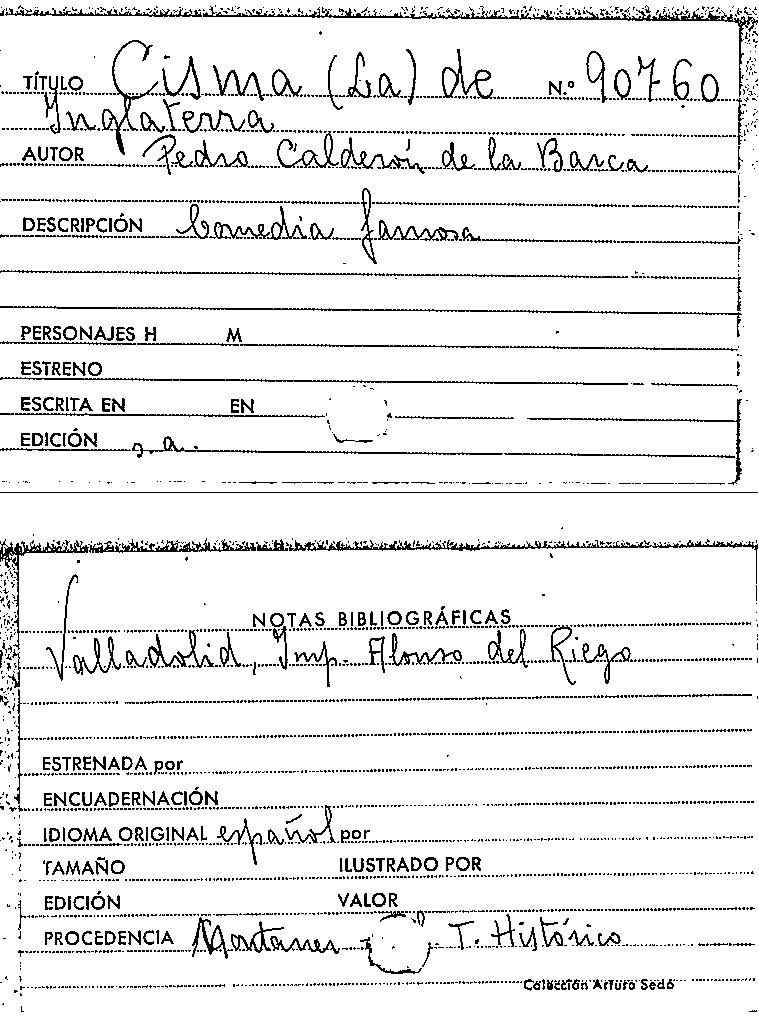 TÍTULO Cisma (La) de N.º 90760
Inglaterra
AUTOR Pedro Calderón de la Barca
DESCRIPCIÓN Comedia famosa
PERSONAJES H M
ESTRENO
ESCRITA EN EN
EDICIÓN s.a.
NOTAS BIBLIOGRÁFICAS
Valladolid, Imp. Alonso del Riego
ESTRENADA por
ENCUADERNACIÓN
IDIOMA ORIGINAL español por
TAMAÑO ILUSTRADO POR
EDICIÓN VALOR
PROCEDENCIA Montaner - T. Histórico
Colección Arturo Sedó